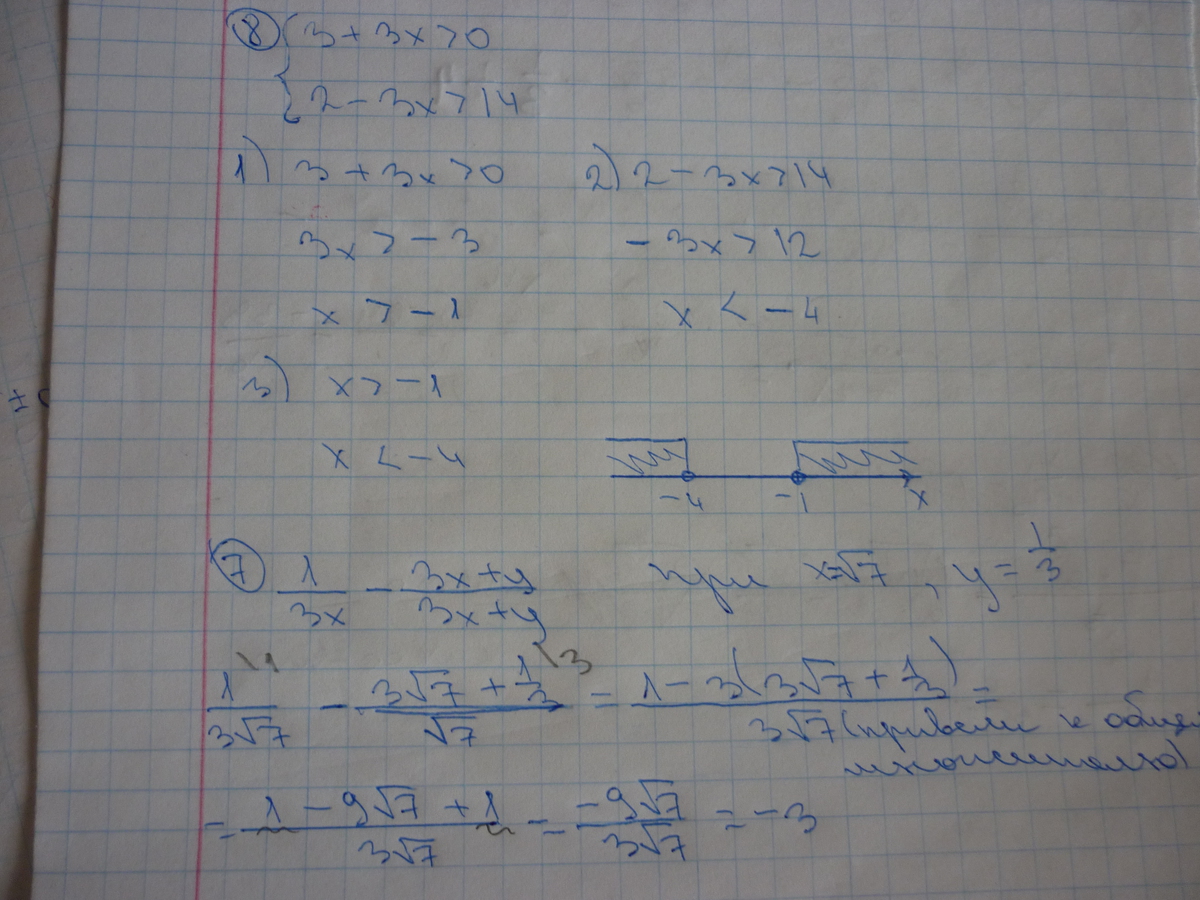 8 { 3 + 3x > 0
2 - 3x > 14
1) 3 + 3x > 0 2) 2 - 3x > 14
3x > - 3 - 3x > 12
x > - 1 x < - 4
3) x > - 1
x < - 4
-4 -1 x
7 1/3x - (3x+y)/(3x+y) при x=√7, y = 1/3
1\1/3√7 - (3√7 + 1/3)\3/√7 = (1 - 3(3√7 + 1/3))/3√7 =
(привели к общем
множителю)
= (1 - 9√7 + 1)/3√7 = -9√7/3√7 = -3
±